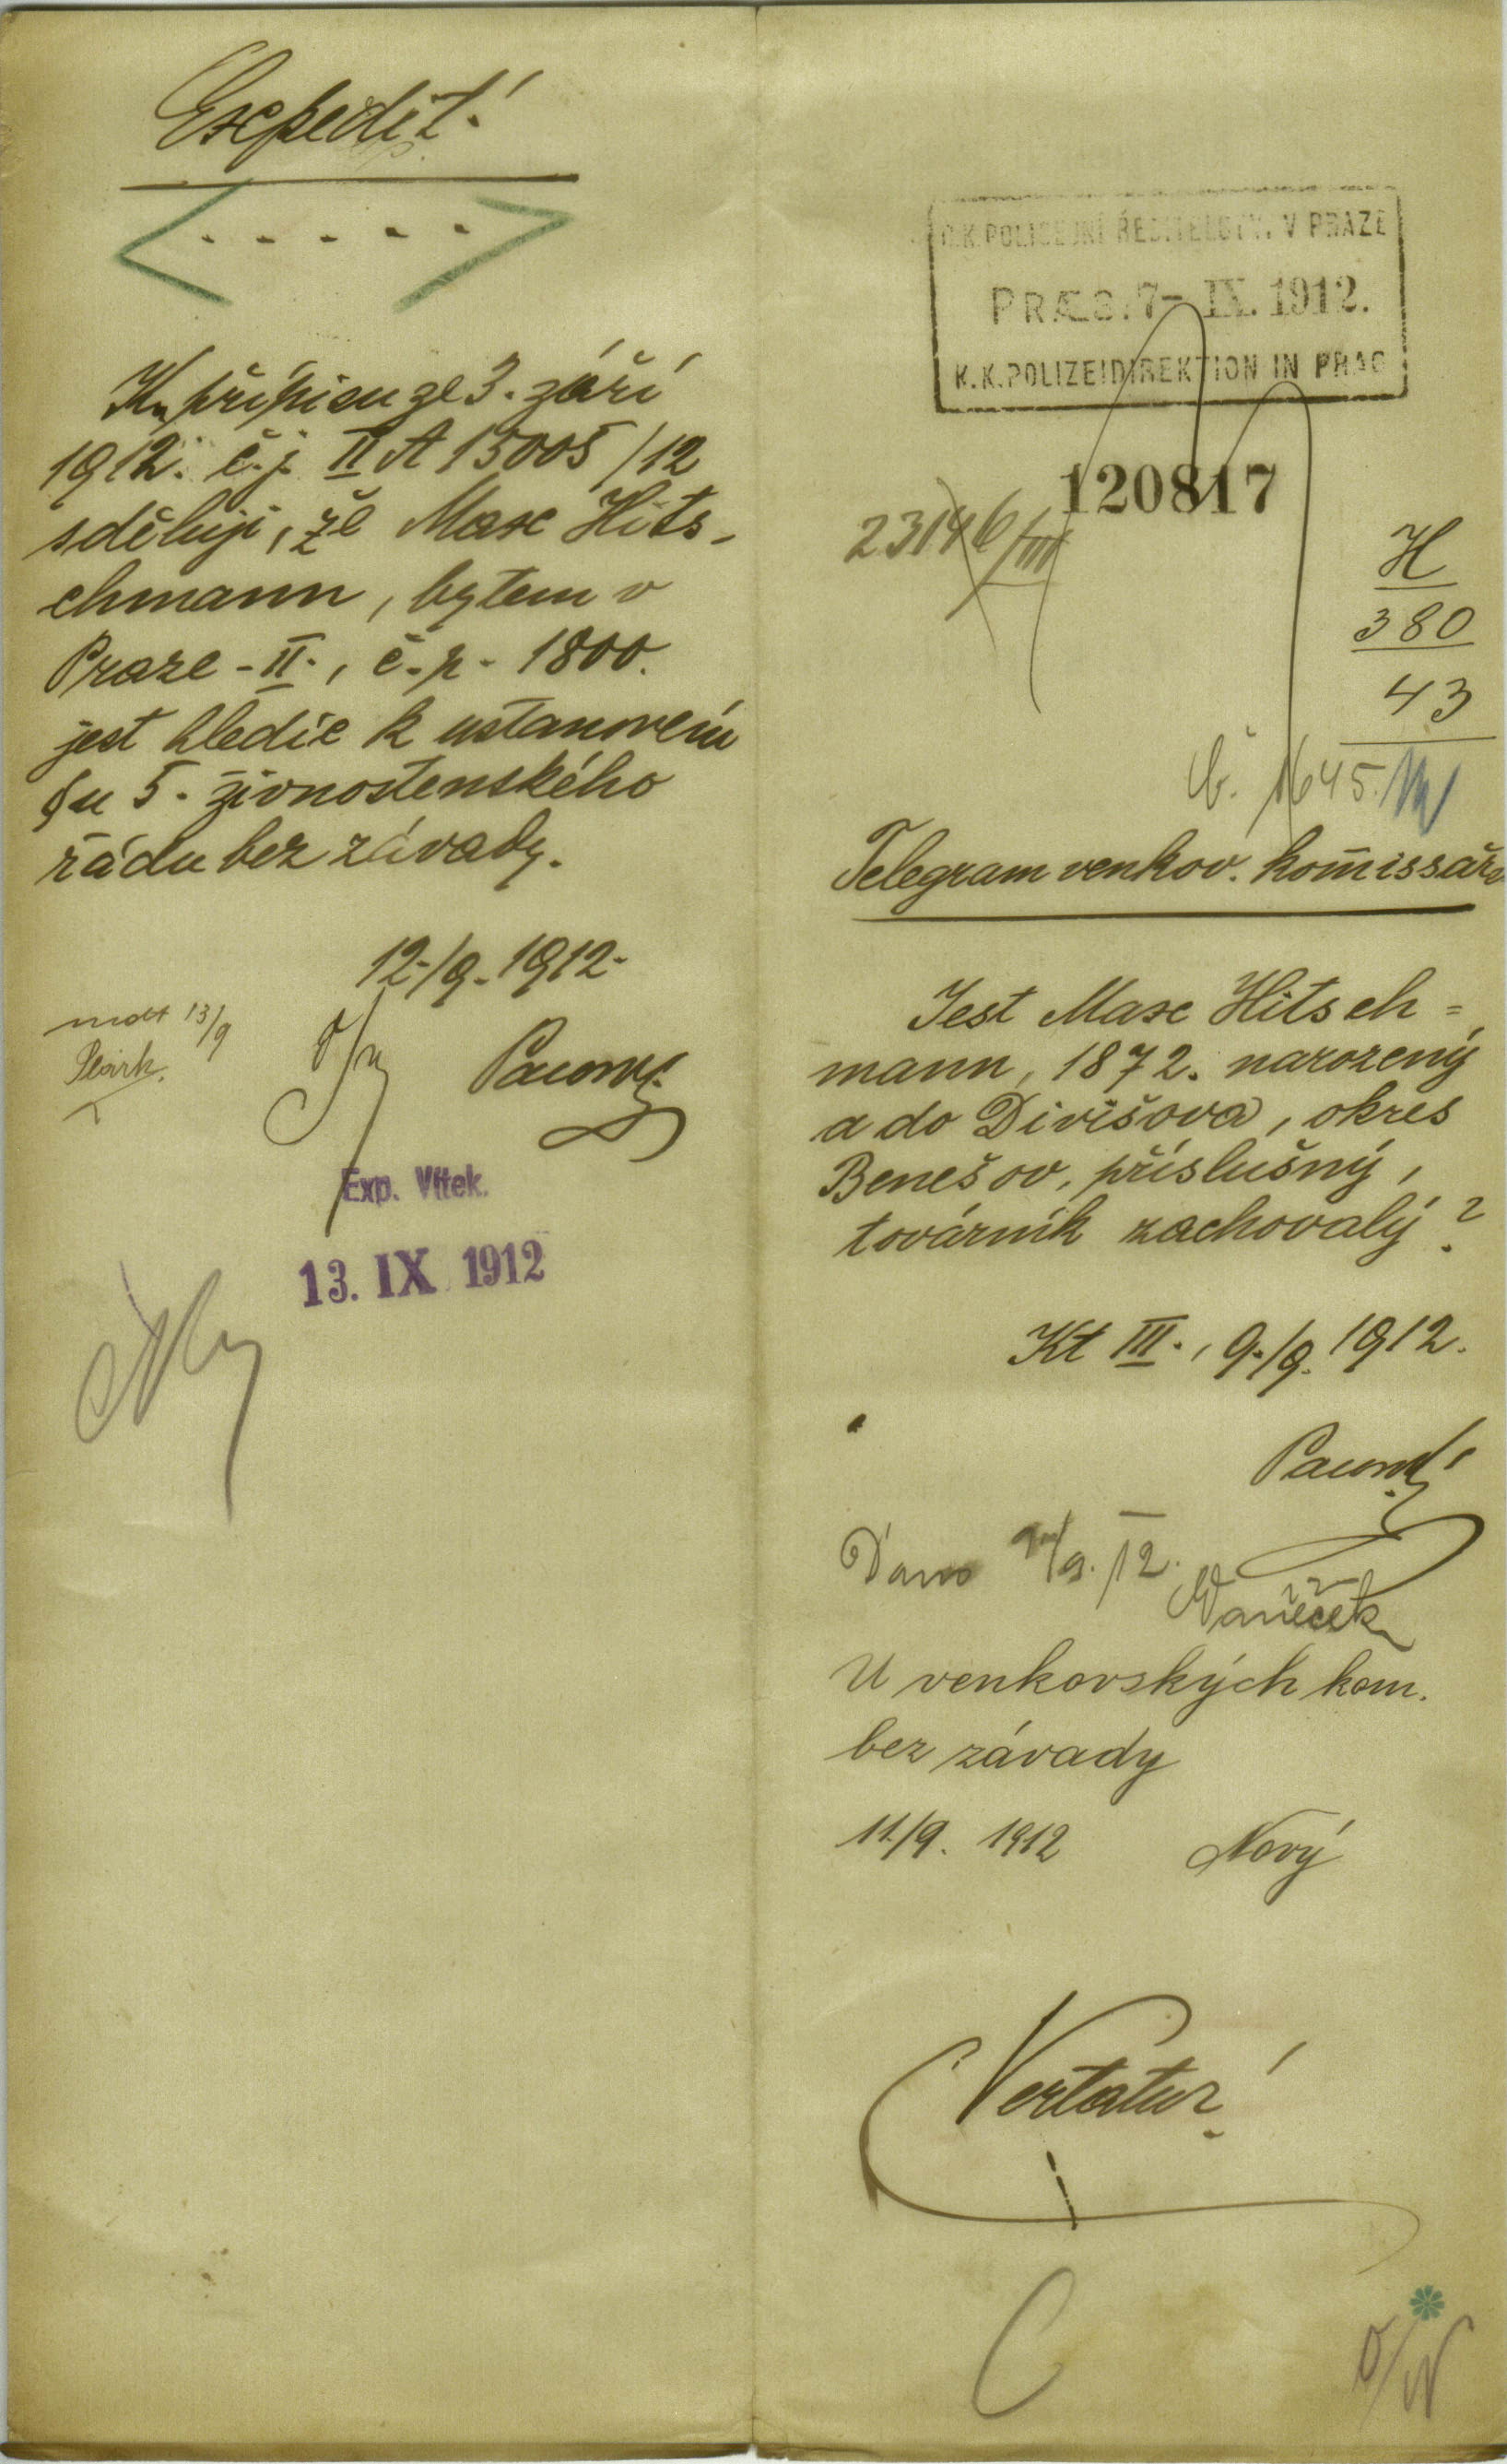 Expedit!
. . . . .
Ku přípisu ze 3. září
1912. č.j. II A 15005/12
sděluji, že Max Hits-
chmann, bytem v
Praze - II., č.p. 1800.
jest hledíc k ustanovení
§u 5. živnostenského
řádu bez závady.
12./9. 1912.
13/9
Exp. Vítek.
13. IX 1912
C.K. POLICEJNÍ ŘEDITELSTV. V PRAZE
PRÆS. 7- IX. 1912.
K.K. POLIZEIDIREKTION IN PRAG
120817
23146/III
H
380
43
1645.
Telegram venkov. kom̄issaře
Jest Max Hitsch=
mann, 1872. narozený
a do Divišova, okres
Benešov, příslušný,
továrník zachovalý?
Kt III., 9./9. 1912.
Dano /9. 12.
Vaněček
U venkovských kom.
bez závady
11/9. 1912 Nový
Vertatur!